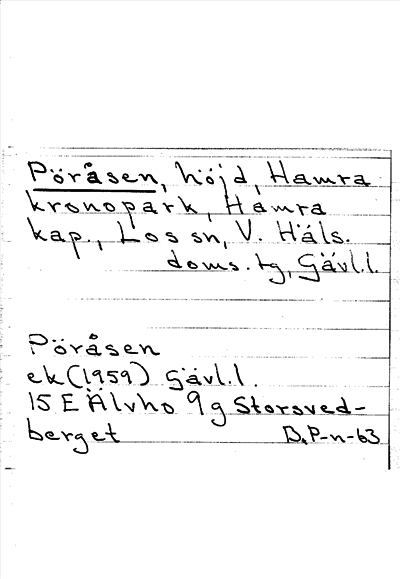 Pöråsen, höjd, Hamra
kronopark, Hamra
kap., Los sn, V. Häls.
doms. tg, Gävl.l.
Pöråsen
ek(1959) Gävl.l.
15 E Älvho 9g Storsved-
berget D.P-n-63